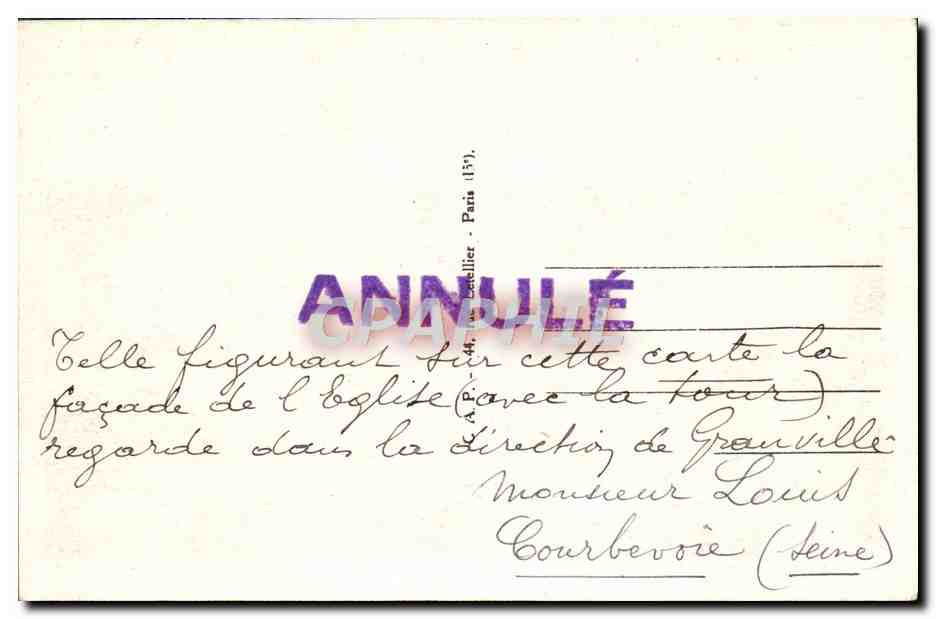 C. A. P. - 44, rue Letellier - Paris (15e).
ANNULÉ
CPAPHIL
Telle figurant sur cette carte la
façade de l'Eglise (avec la tour)
regarde dans la direction de Granville
Monsieur Louis
Courbevoie (Seine)